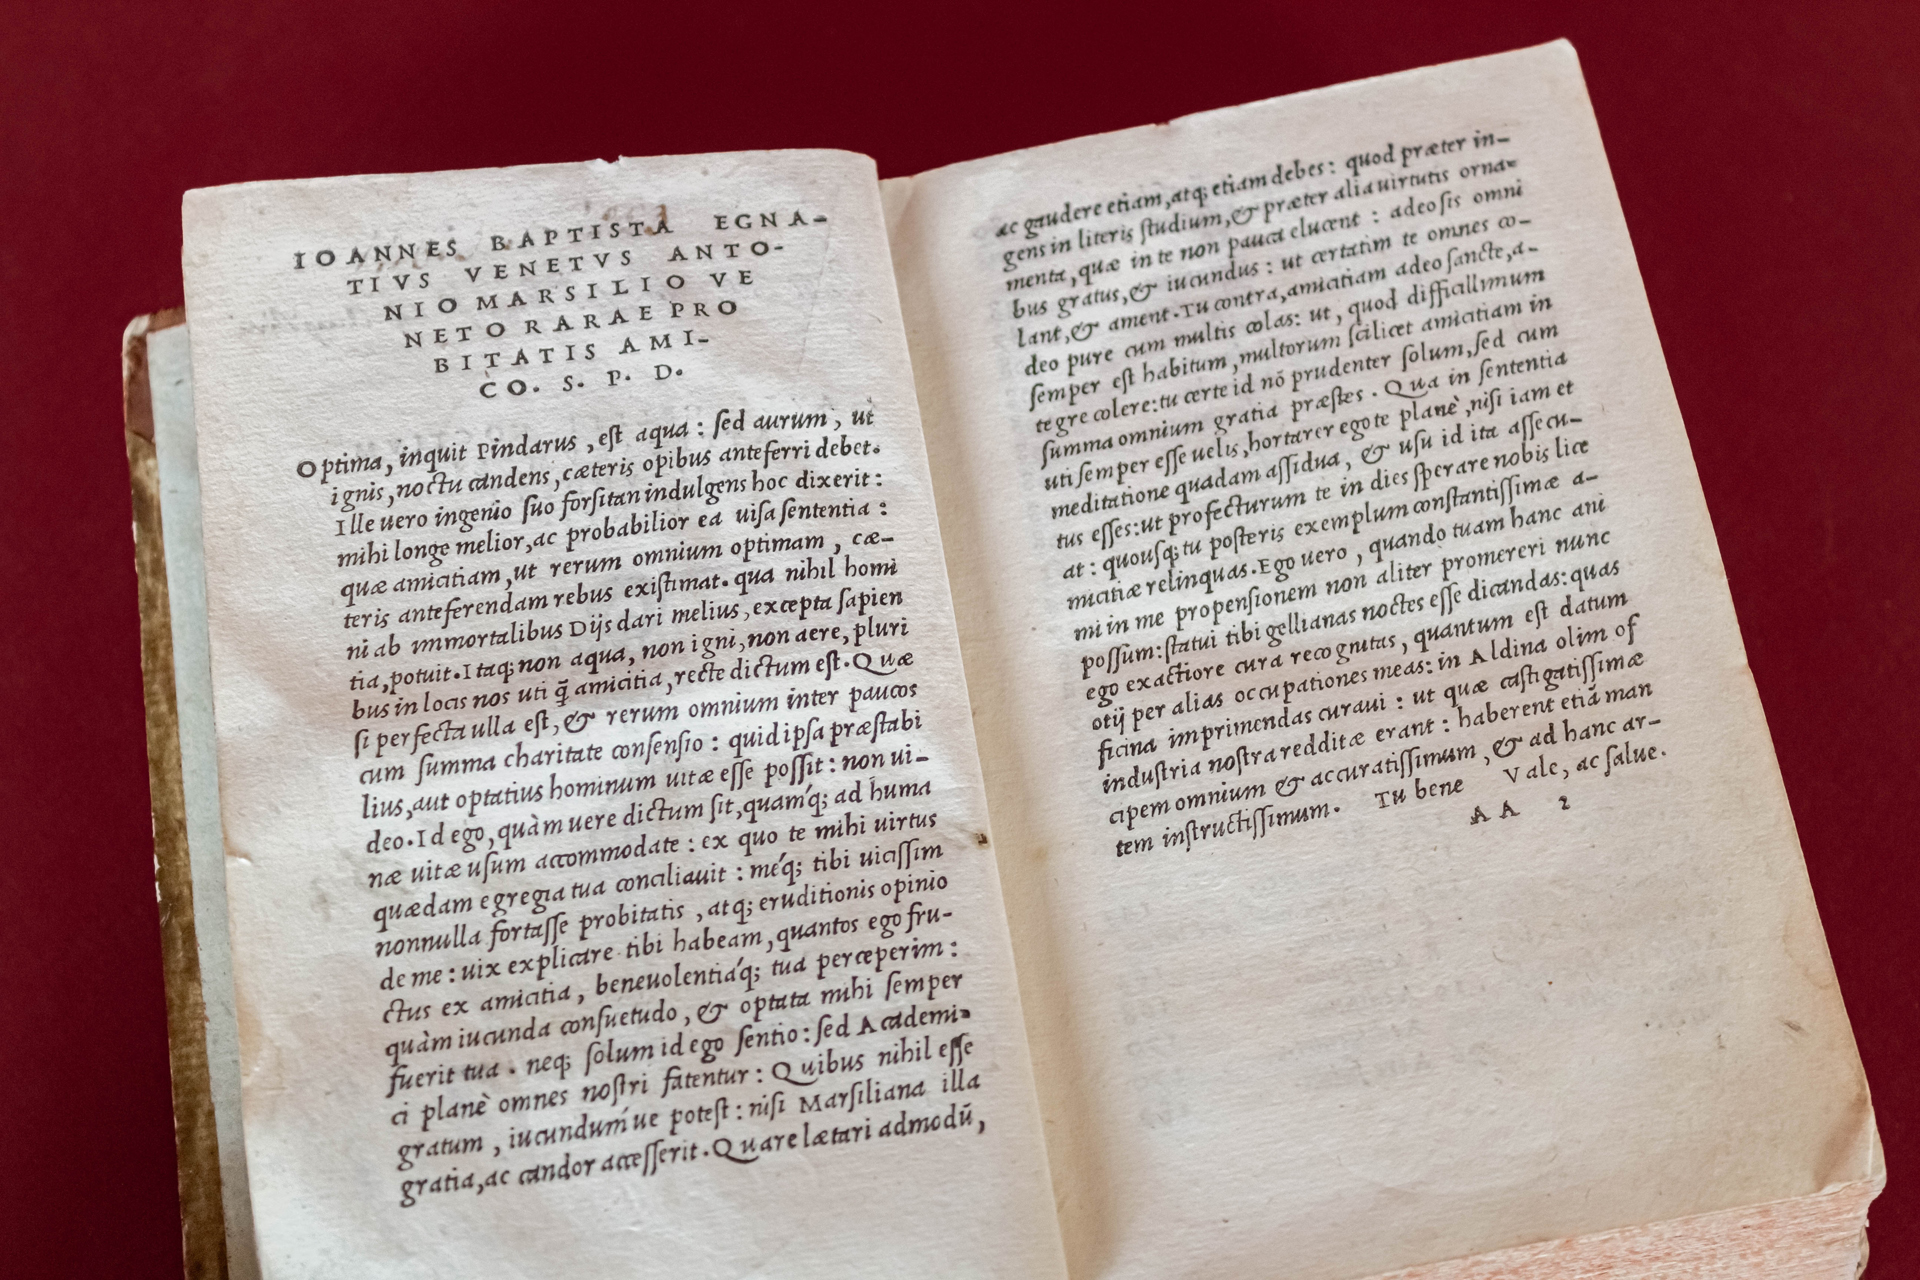 IOANNES BAPTISTA EGNA-
TIVS VENETVS ANTO-
NIO MARSILIO VE
NETO RARAE PRO
BITATIS AMI-
CO. S. P. D.
Optima, inquit Pindarus, est aqua: sed aurum, ut
ignis, noctu candens, cæteris opibus anteferri debet.
Ille uero ingenio suo forsitan indulgens hoc dixerit:
mihi longe melior, ac probabilior ea uisa sententia:
quæ amicitiam, ut rerum omnium optimam, cæ-
teris anteferendam rebus existimat. qua nihil homi
ni ab immortalibus Dijs dari melius, excepta sapien
tia, potuit. Itaq; non aqua, non igni, non aere, pluri
bus in locis nos uti q̃ amicitia, recte dictum est. Quæ
si perfecta ulla est, & rerum omnium inter paucos
cum summa charitate consensio: quid ipsa præstabi
lius, aut optatius hominum uitæ esse possit: non ui-
deo. Id ego, quàm uere dictum sit, quámq; ad huma
næ uitæ usum accommodate: ex quo te mihi uirtus
quædam egregia tua conciliauit: méq; tibi uicissim
nonnulla fortasse probitatis, atq; eruditionis opinio
de me: uix explicare tibi habeam, quantos ego fru-
ctus ex amicitia, beneuolentiáq; tua perceperim:
quàm iucunda consuetudo, & optata mihi semper
fuerit tua. neq; solum id ego sentio: sed Academi-
ci planè omnes nostri fatentur: Quibus nihil esse
gratum, iucundúmue potest: nisi Marsiliana illa
gratia, ac candor accesserit. Quare lætari admodū,
ac gaudere etiam, atq; etiam debes: quod præter in-
gens in literis studium, & præter alia uirtutis orna-
menta, quæ in te non pauca elucent: adeo sis omni
bus gratus, & iucundus: ut certatim te omnes co-
lant, & ament. Tu contra, amicitiam adeo sancte, a-
deo pure cum multis colas: ut, quod difficillimum
semper est habitum, multorum scilicet amicitiam in
tegre colere: tu certe id nō prudenter solum, sed cum
summa omnium gratia præstes. Qua in sententia
uti semper esse uelis, hortarer ego te planè, nisi iam et
meditatione quadam assidua, & usu id ita assecu-
tus esses: ut profecturum te in dies sperare nobis lice
at: quousq; tu posteris exemplum constantissimæ a-
micitiæ relinquas. Ego uero, quando tuam hanc ani
mi in me propensionem non aliter promereri nunc
possum: statui tibi gellianas noctes esse dicandas: quas
ego exactiore cura recognitas, quantum est datum
otij per alias occupationes meas: in Aldina olim of
ficina imprimendas curaui: ut quæ castigatissimæ
industria nostra redditæ erant: haberent etiā man
cipem omnium & accuratissimum, & ad hanc ar-
tem instructissimum. Tu bene Vale, ac salue.
AA 2